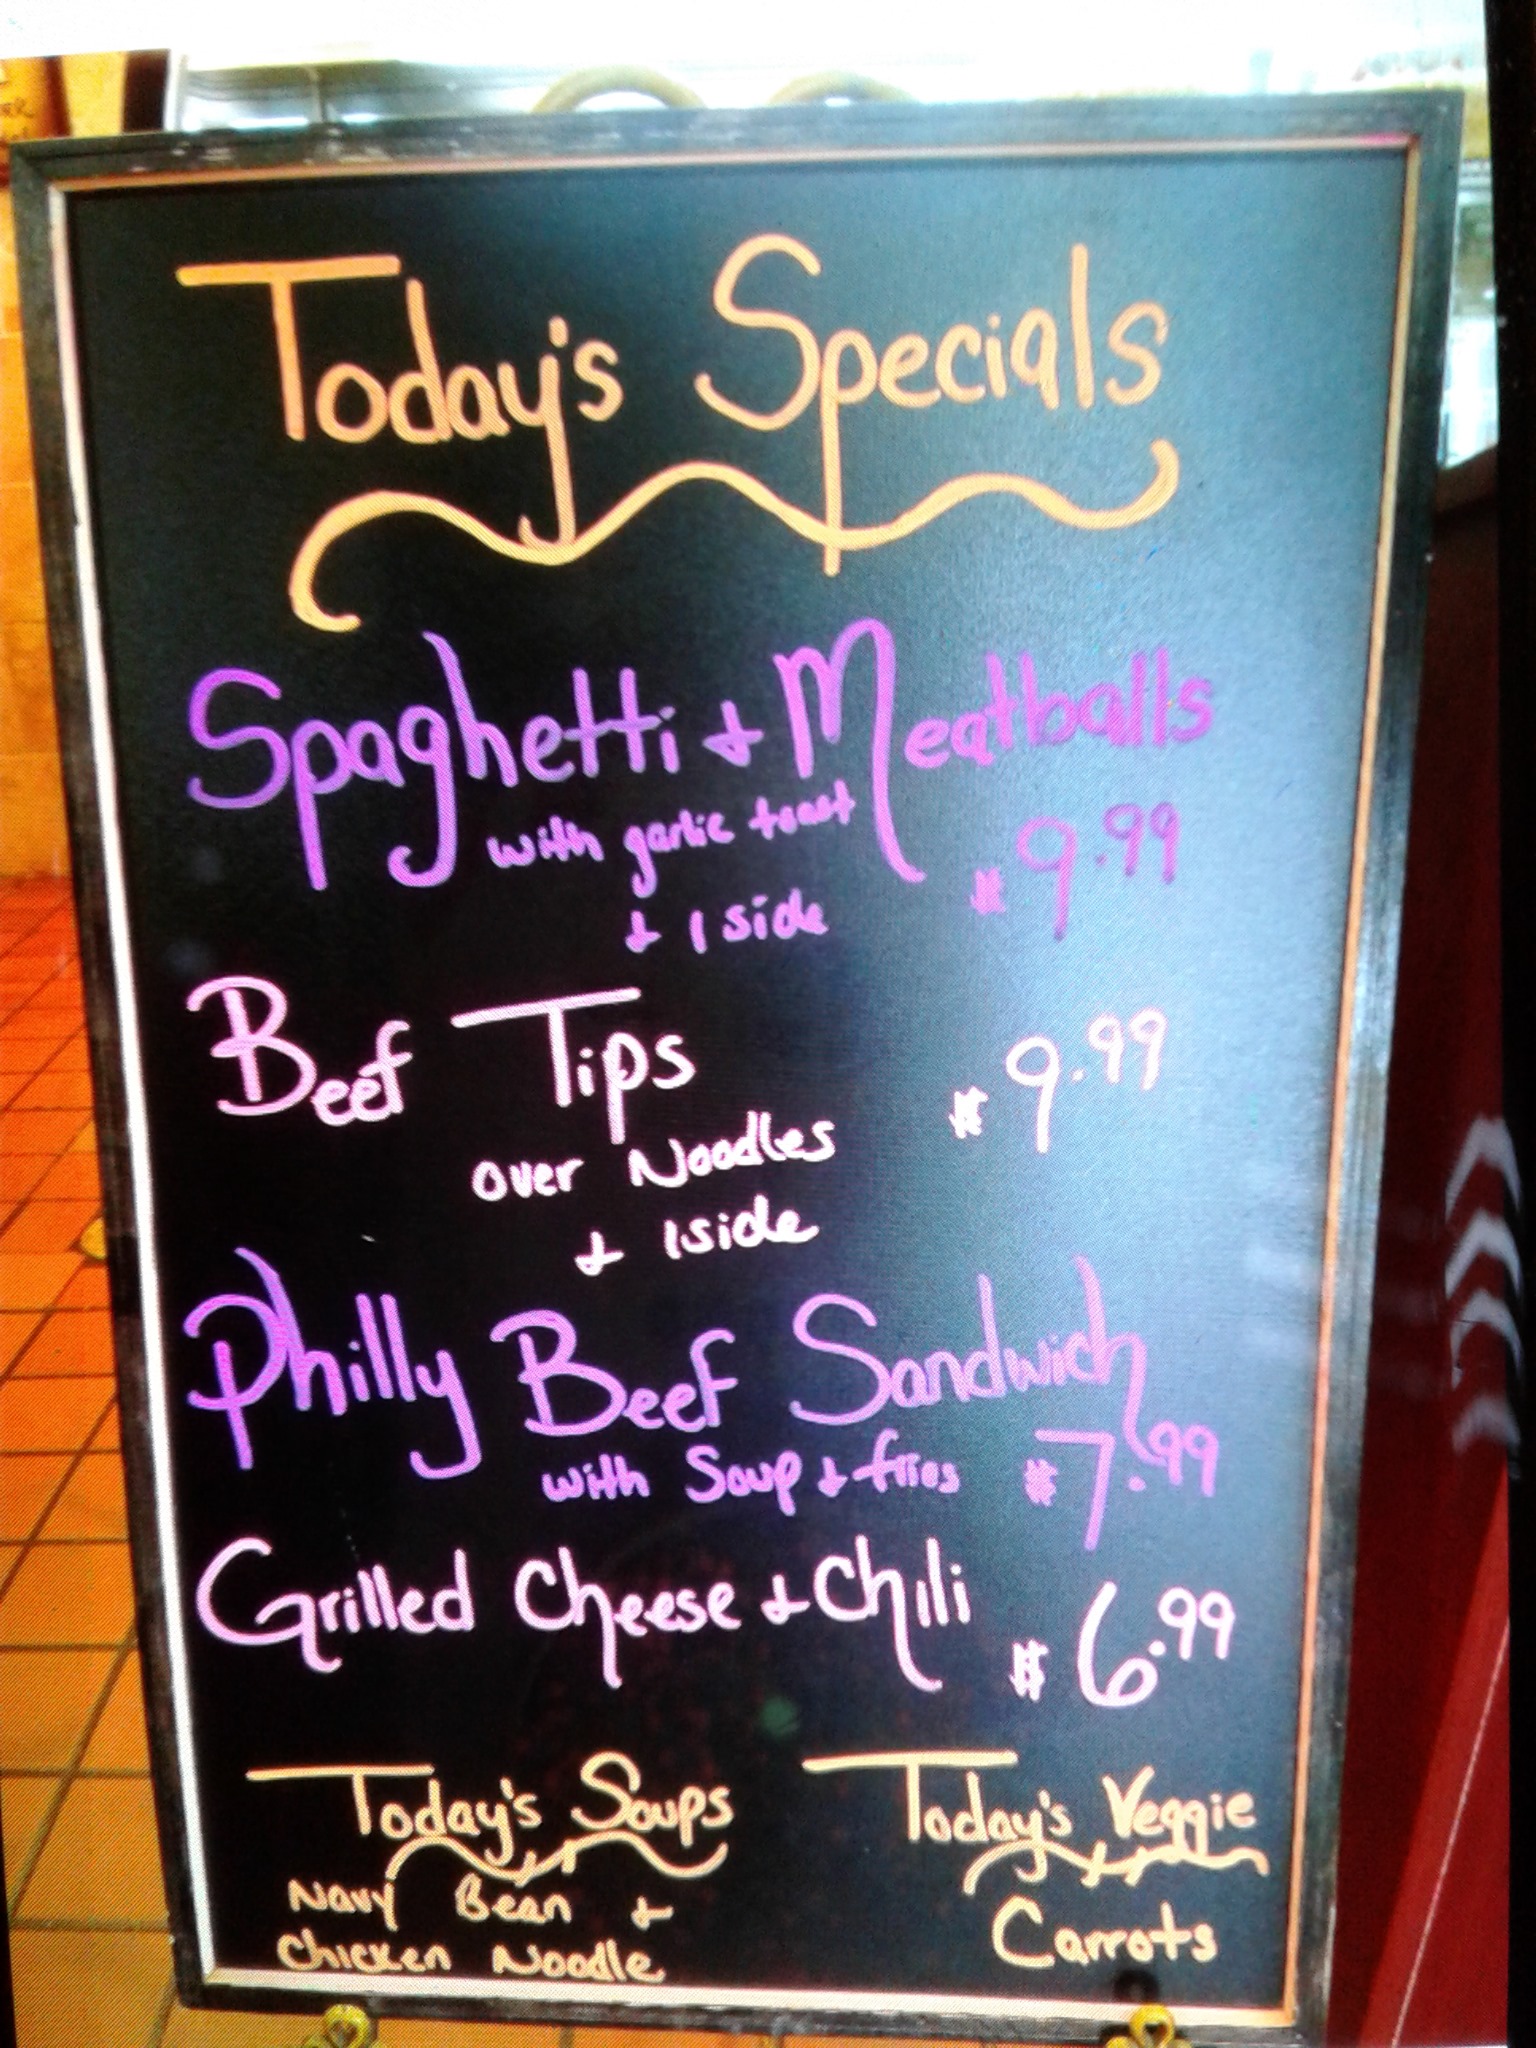 Today's Specials
Spaghetti + Meatballs
with garlic toast
+ 1 side $9.99
Beef Tips $9.99
over Noodles
+ 1 side
Philly Beef Sandwich
with Soup + fries $7.99
Grilled Cheese + Chili $6.99
Today's Soups
Navy Bean +
Chicken Noodle
Today's Veggie
Carrots